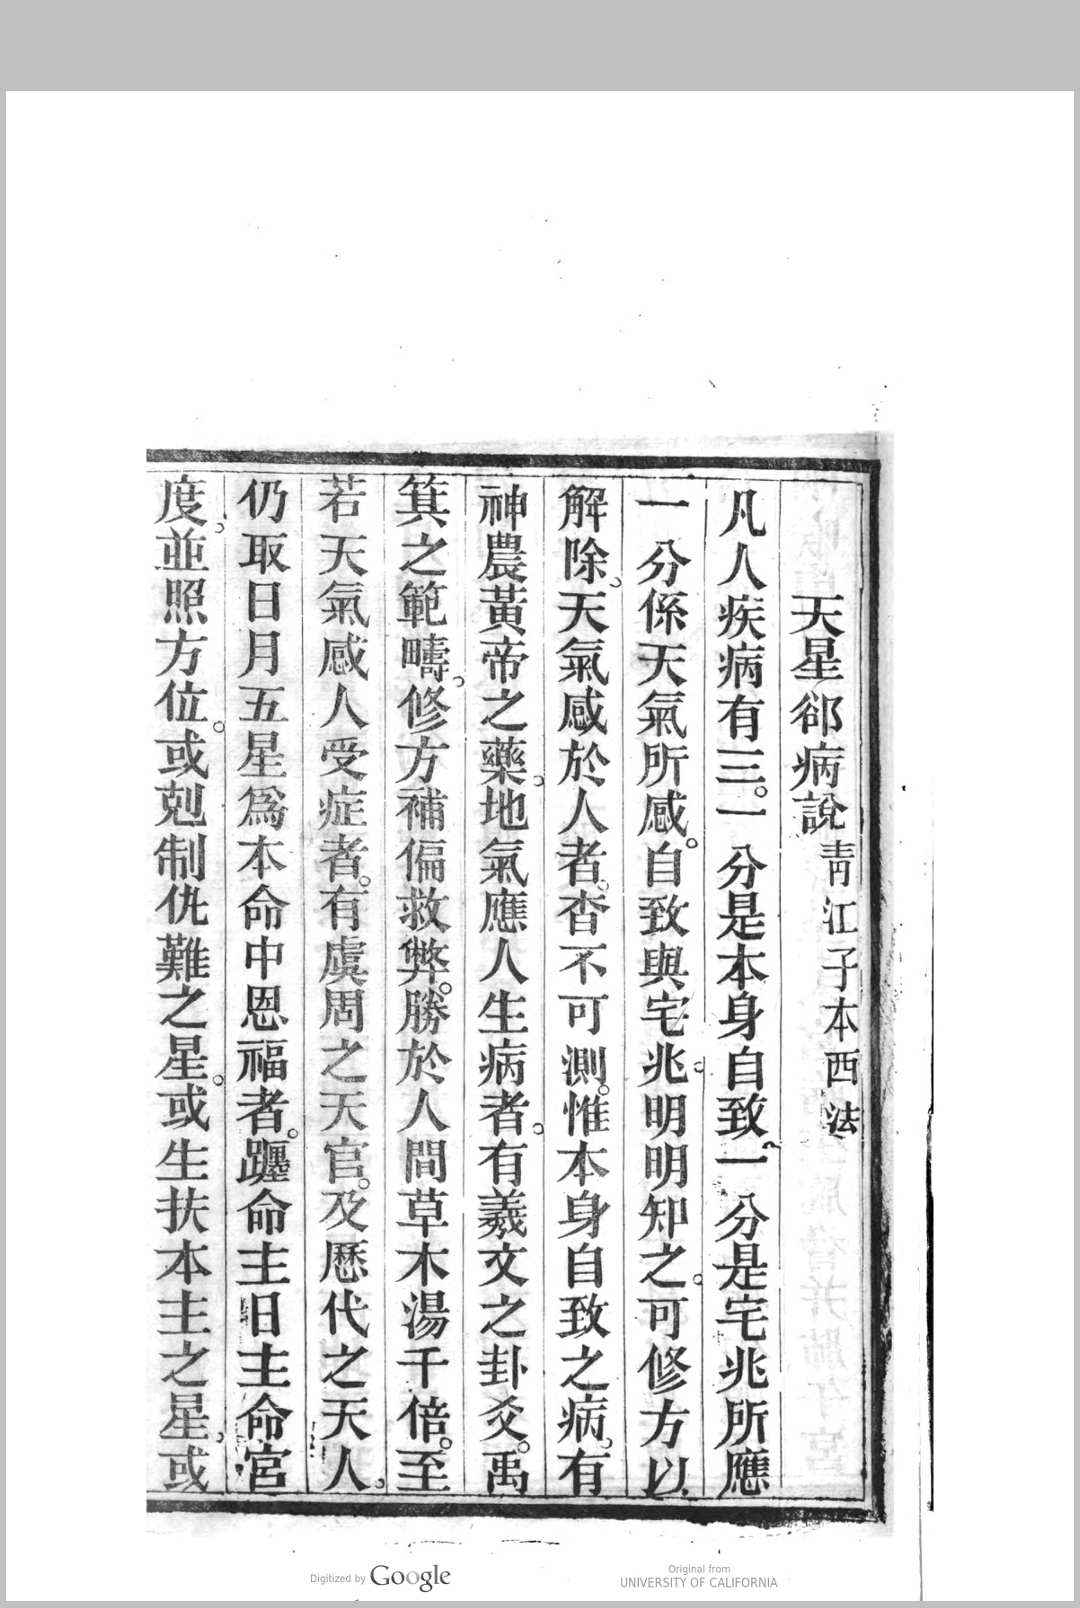 天星郤病說青江子本西法
凡人疾病有三。一分是本身自致。一分是宅兆所應
一分係天氣所感。自致與宅兆。明明知之。可修方以
解除。天氣感於人者。杳不可測。惟本身自致之病。有
神農黃帝之藥。地氣應人生病者。有羲文之卦爻。禹
箕之範疇。修方補偏救弊。勝於人間草木湯千倍。至
若天氣感人受症者。有虞周之天官。及歷代之天人。
仍取日月五星爲本命中恩福者。躔命主旧主命宮
度。並照方位。或剋制仇難之星。或生扶本主之星。或
Digitized by Google
Original from
UNIVERSITY OF CALIFORNIA